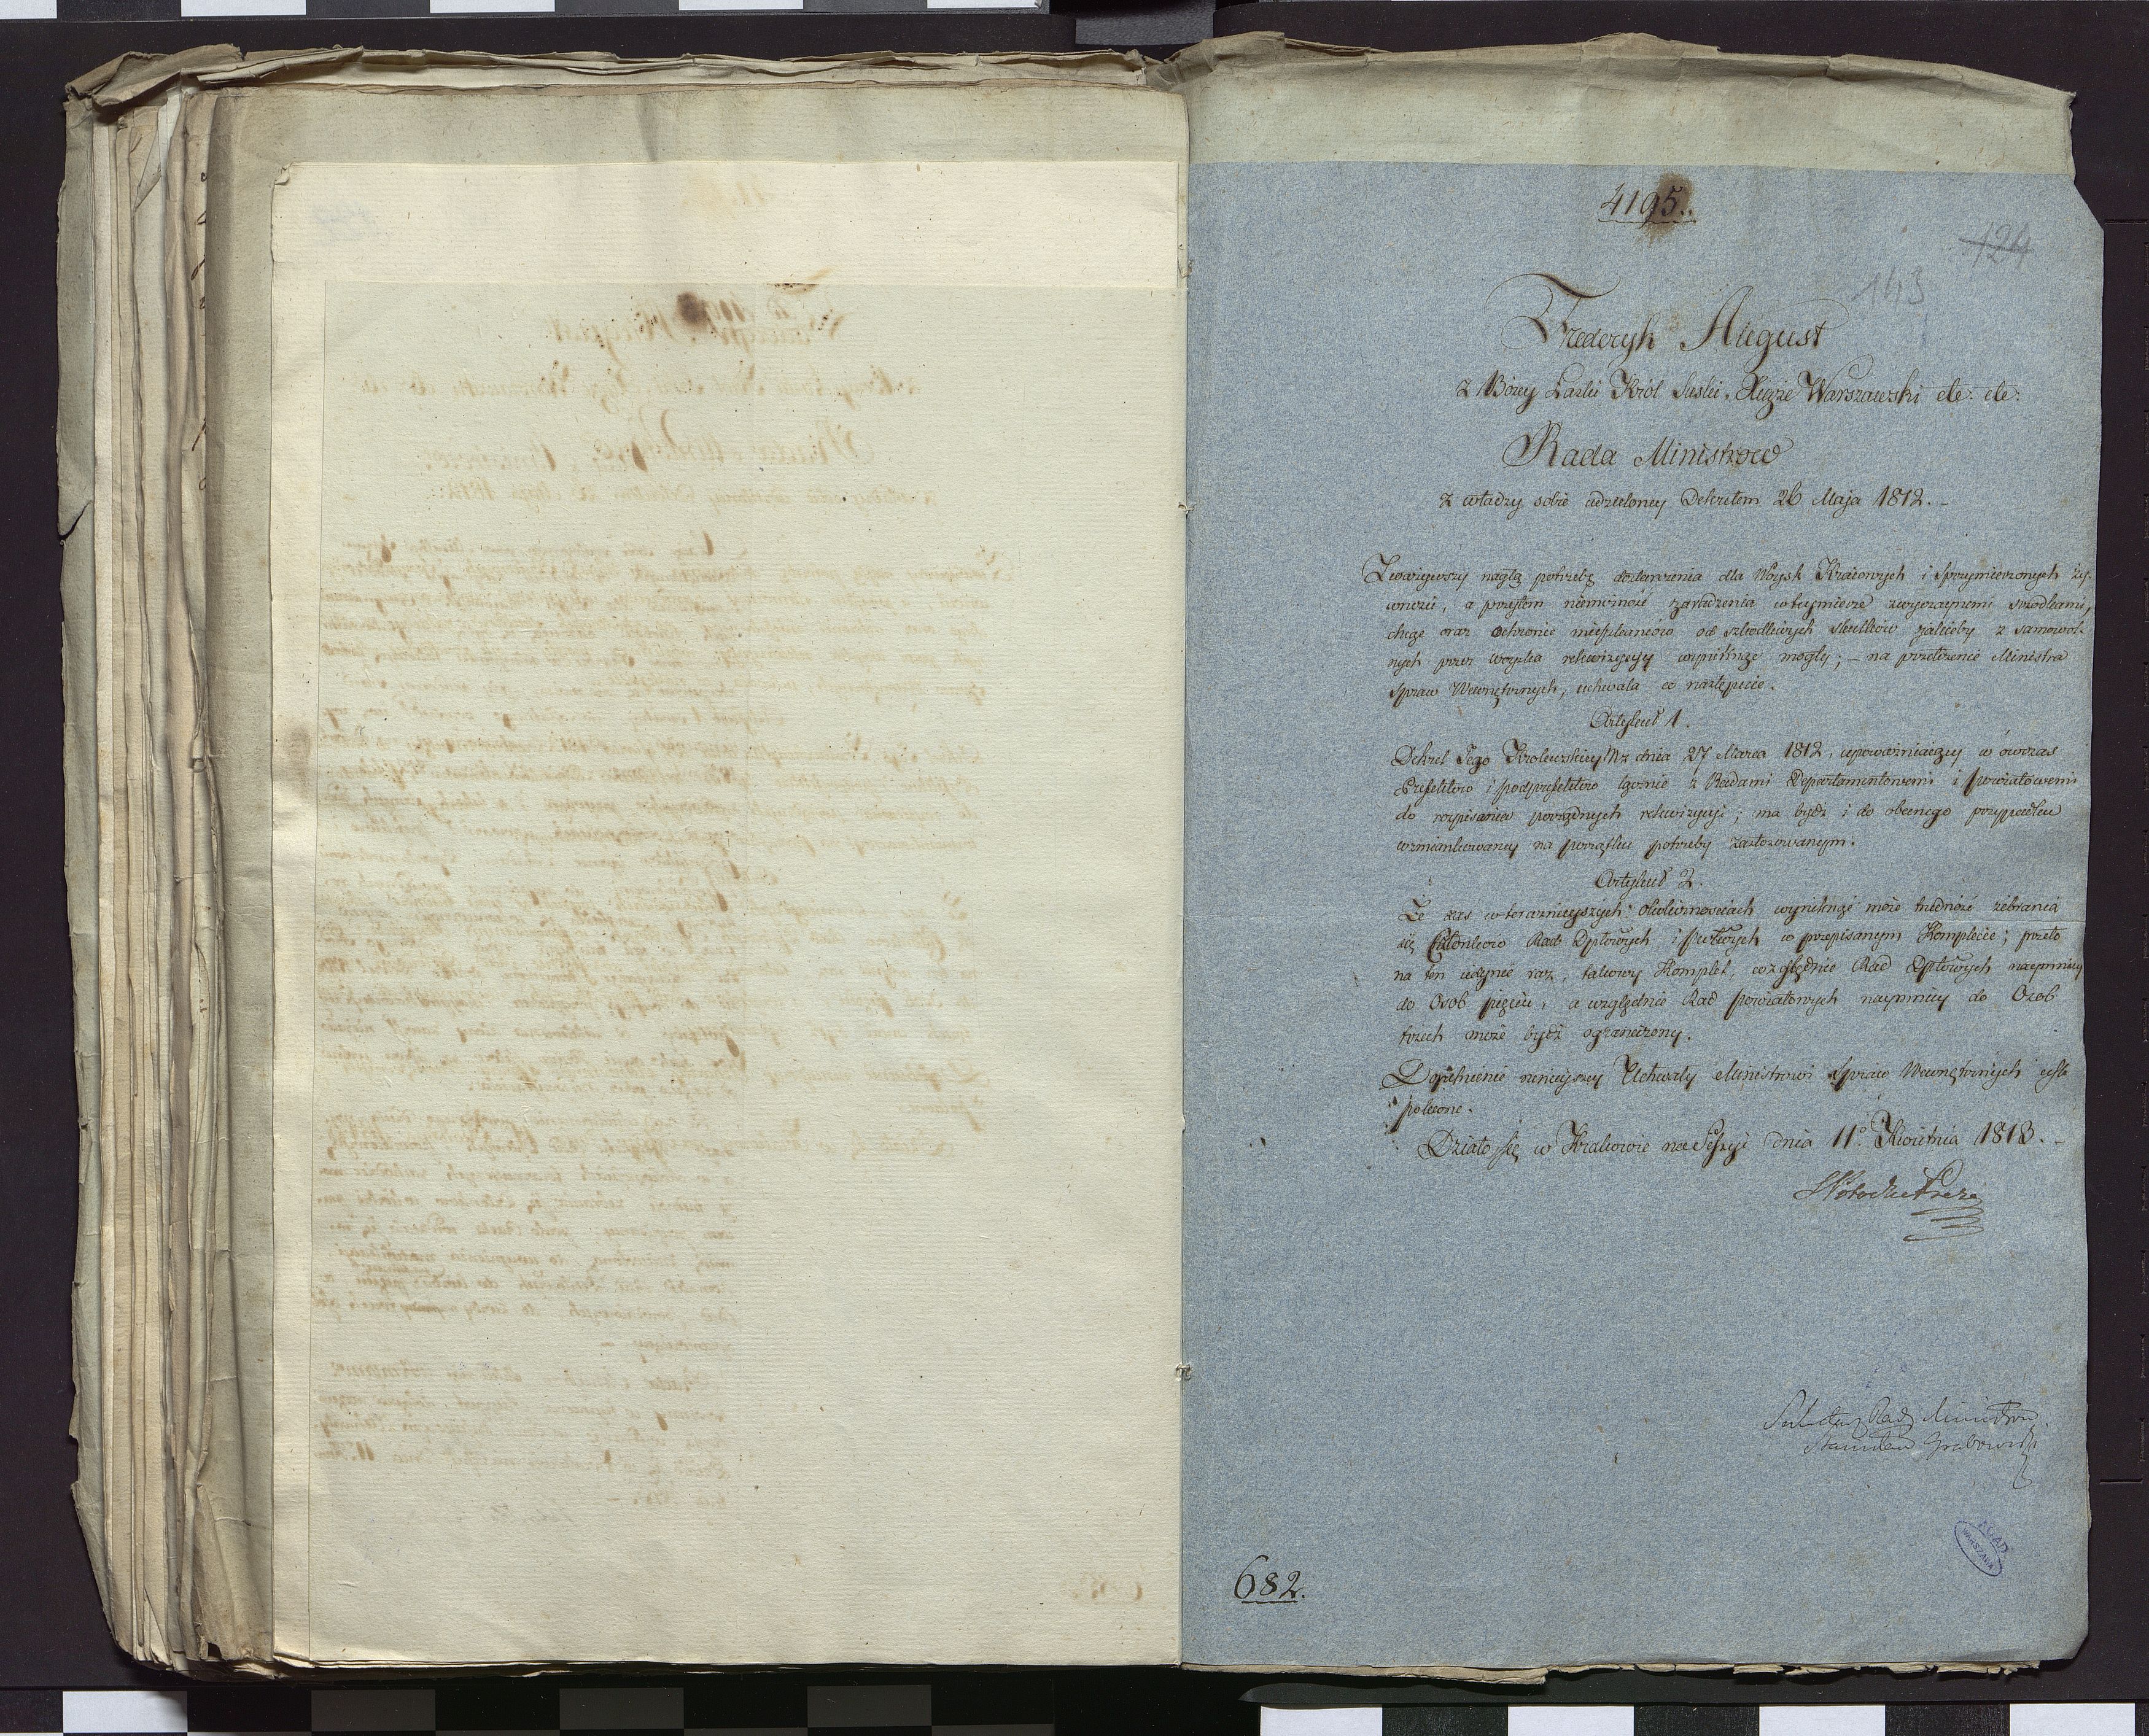 4195.
124
143
Frederyk August
z Bożey Łaski Król Saski, Xiąże Warszawski etc: etc:
Rada Ministrow
z władzy sobie udzieloney Dekretem 26 Maja 1812. _
Zważywszy nagłą potrzebę dostawienia dla Woysk Kraiowych i Sprzymierzonych ży-
wnosci, a przytem niemożność zaradzenia w teymierze zwyczaynemi srzodkami,
chcąc oraz ochronić mieszkańców od szkodliwych skutków jakieby z samowol-
nych przez woyska rekwizycyi wyniknąć mogły; – na przełożenie Ministra
Spraw Wewnętrznych, uchwala co następuie.
Artykuł 1.
Dekret Jego Krolewskiey Mci z dnia 27 Marca 1812, upoważniaiący w ówczas
Prefektow i podprefektow łącznie z Radami Departamentowemi i powiatowemi
do rozpisania porządnych rekwizycyi; ma bydź i do obecnego przypadku
wzmiankowaney na początku potrzeby zastosowanym.
Artykuł 2.
Że zas w teraznieyszych okolicznosciach wyniknąć może trudność zebrania
się Członkow Rad Dptowych i pttwych w przepisanym Komplecie; przeto
na ten iedynie raz, takowy Komplet, względnie Rad Dptowych naymniey
do Osob pięciu, a względnie Rad powiatowych naymniey do Osob
trzech może bydź ograniczony.
Dopełnienie ninieyszey Uchwały Ministrowi Spraw Wewnętrznych iest
polecone.
Działo się w Krakowie na Sessyi dnia 11º Kwietnia 1813. _
Sekretarz Rady Ministrow
Stanisław Grabowski
AGAD
WARSZAWA
682.